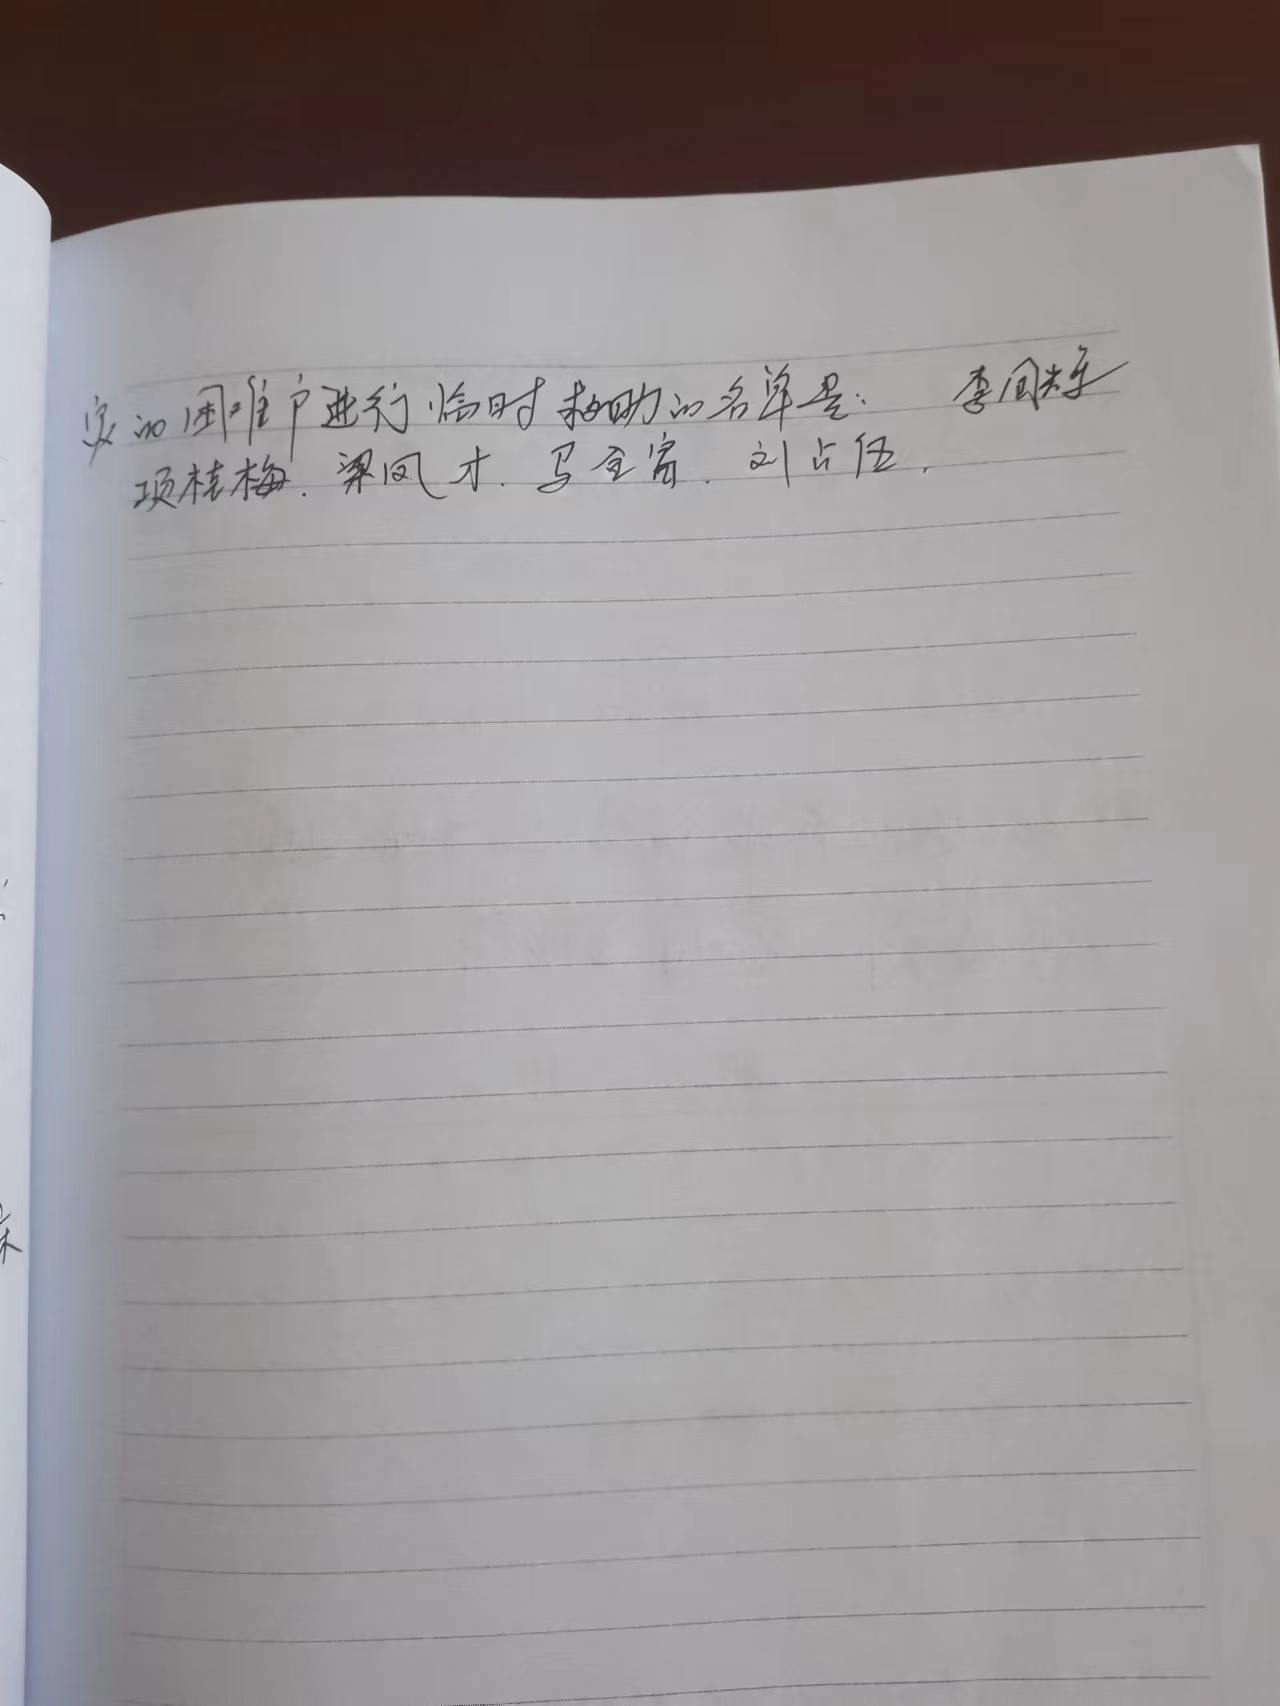 实的困难户进行临时救助的名单是： 李国辉
项桂梅．梁凤才．马全富．刘占伍．